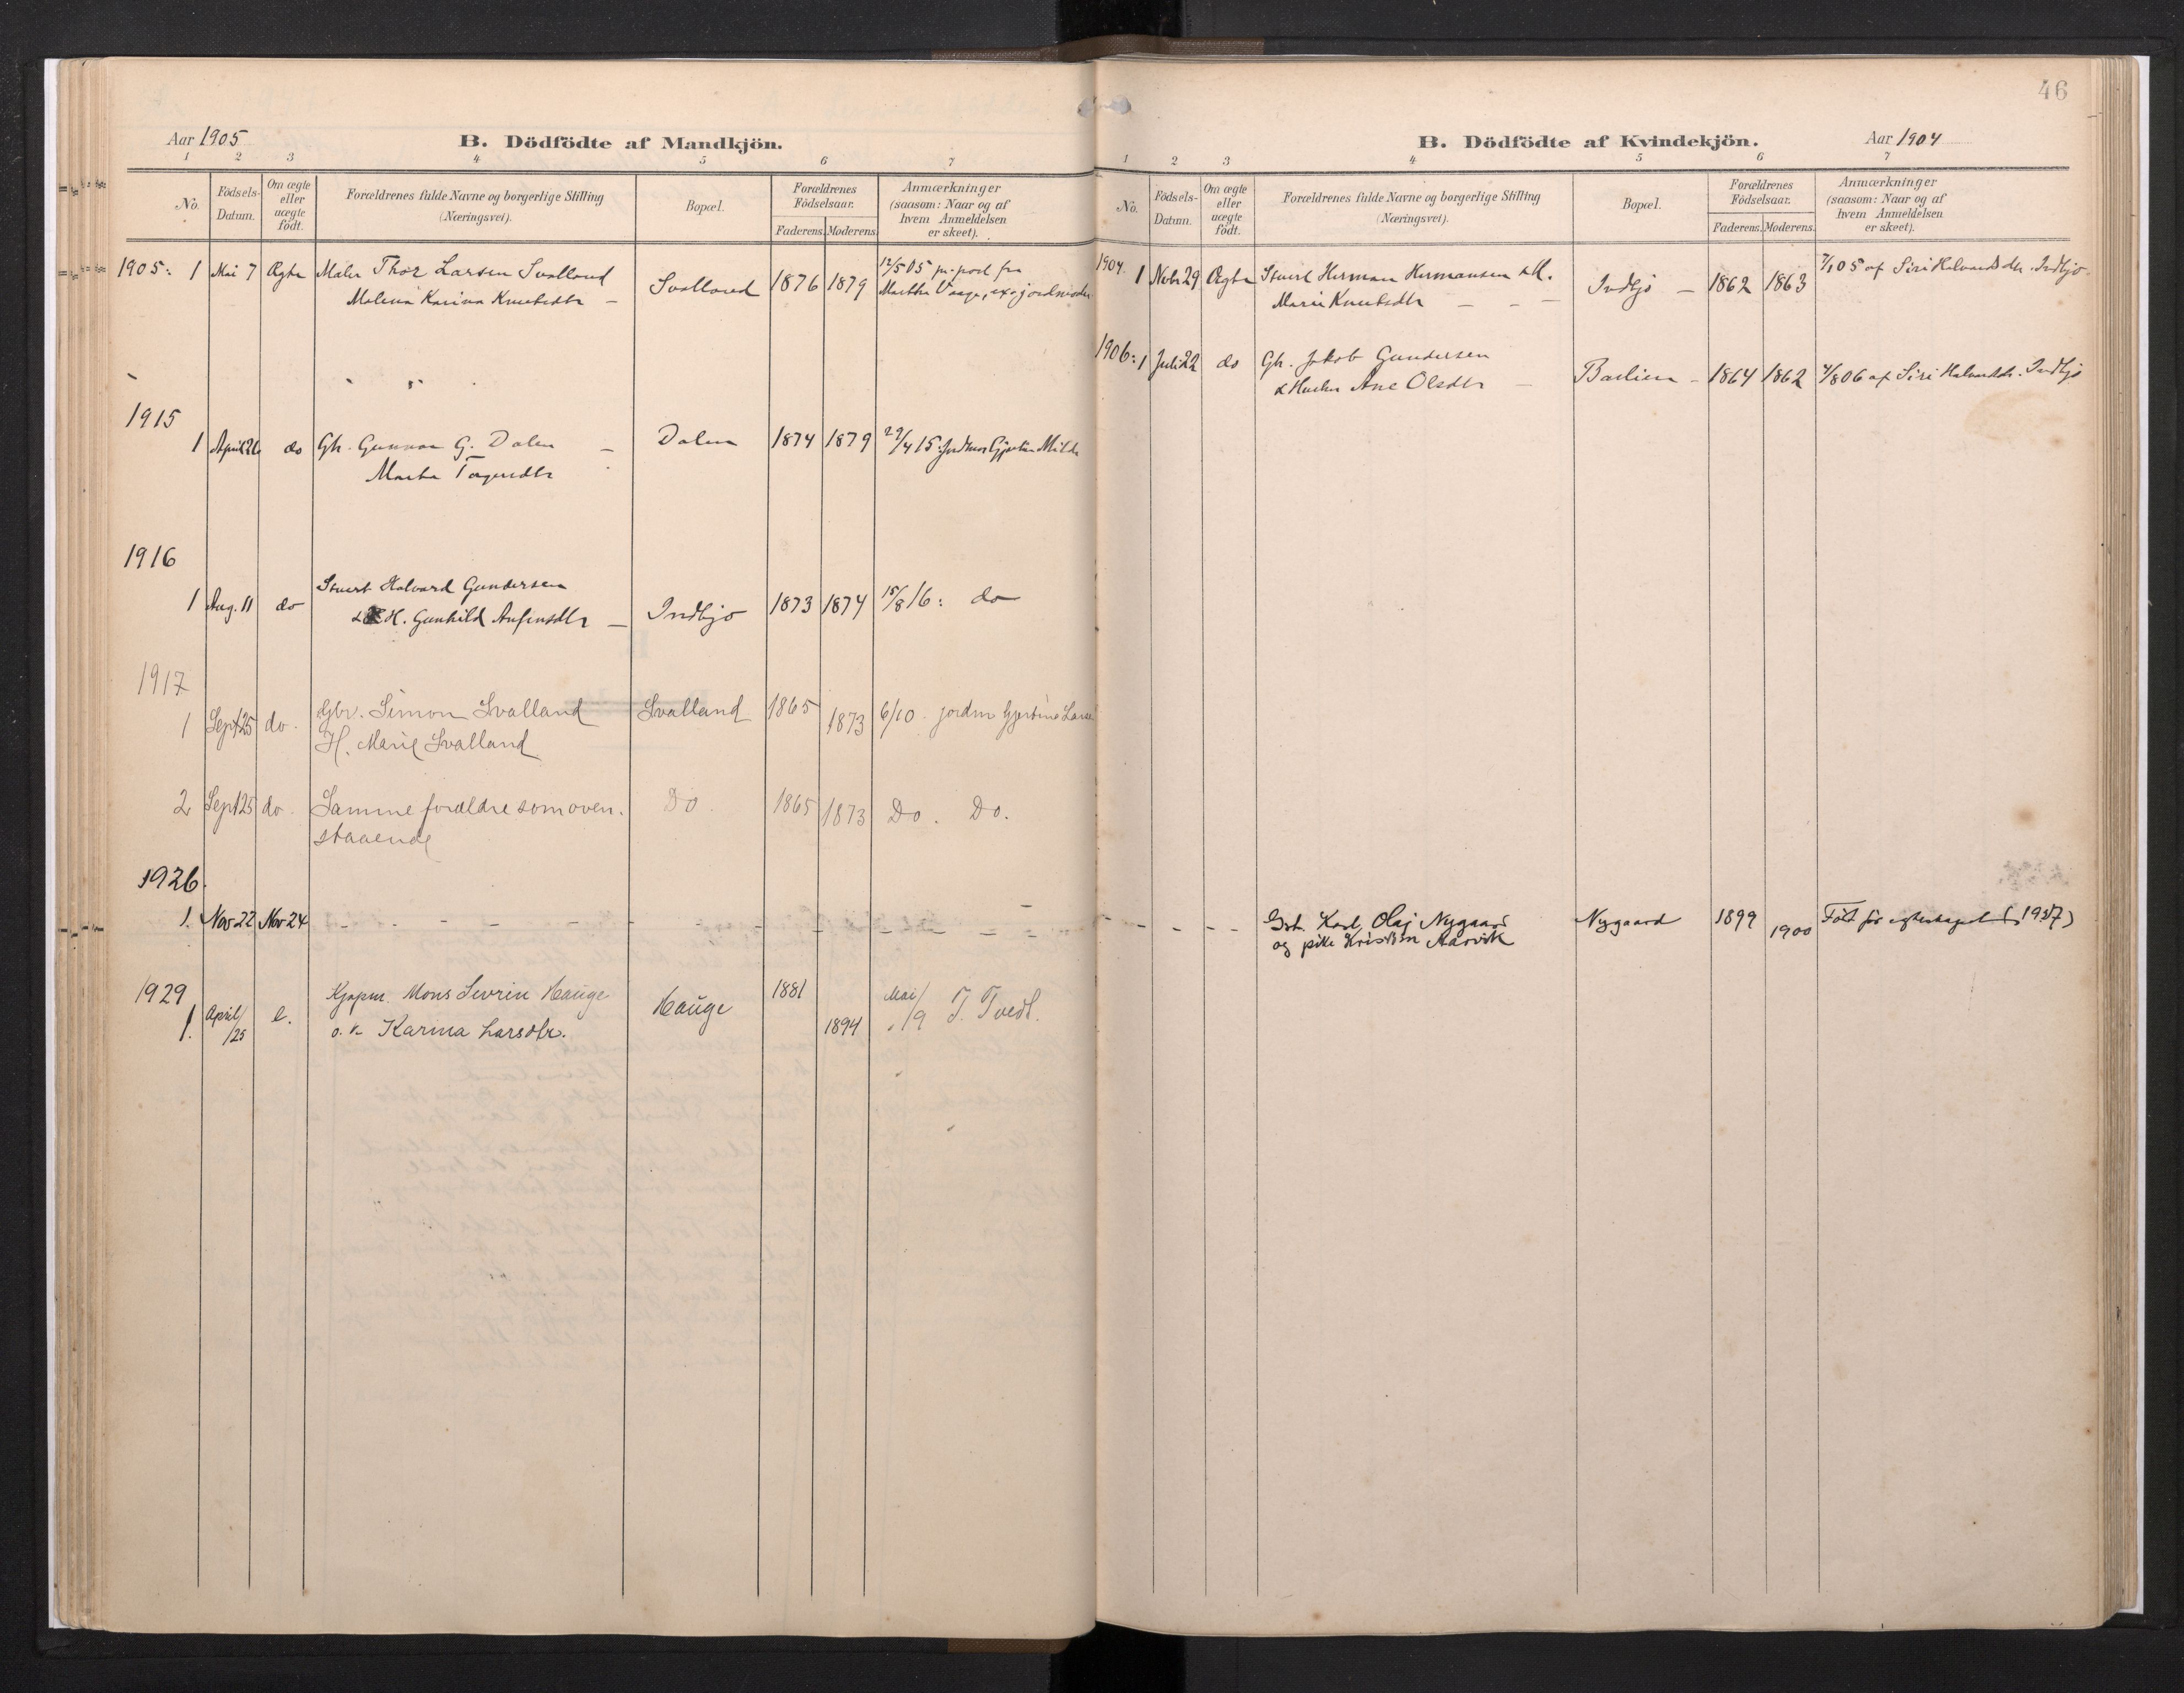 Aar 1905
B. Dödfödte af Mandkjön.
1 2 3 4 5 6 7
No.
Födsels-
Datum.
Om ægte
eller
uægte
födt.
Forældrenes fulde Navne og borgerlige Stilling
(Næringsvei).
Bopæl.
Forældrenes
Födselsaar.
Faderens. Moderens.
Anmærkninger
(saasom: Naar og af
hvem Anmeldelsen
er skeet).
1905: 1 Mai 7 Ægte Maler Thor Larsen Svalland Svalland 1876 1879 12/5 05 pr. post fra
Malena Karina Knutsdtr - Marthe Vaage, exajordmoder
1915
1 April 26 do Gbr. Gunnar G. Dalen - Dalen 1874 1879 29/4 15: Jordmor Gjertine Milde
Marta Torgersdtr
1916
1 Aug. 11 do Stuert Halvard Gundersen
& H. Gunhild Anfinsdtr - Indbjo 1873 1874 15/8 16: do
1917
1 Sept 25 do. Gbr. Simon Svalland Svalland 1865 1873 6/10. jordm Gjertine Larsen
H. Marie Svalland
2 Sept 25 do. Samme forældre som oven. Do. 1865 1873 Do. Do.
staaende
1926.
1. Nov 22 Nov 24 - - - - - - - - - -
1929
1. April/25 e. Kjøpm. Mons Sevrin Hauge Hauge 1881 1894 Mai/9 T. Tvedt.
o. h. Karina Larsdtr.
46
B. Dödfödte af Kvindekjön.
Aar 1904
1 2 3 4 5 6 7
No.
Födsels-
Datum.
Om ægte
eller
uægte
födt.
Forældrenes fulde Navne og borgerlige Stilling
(Næringsvei).
Bopæl.
Forældrenes
Födselsaar.
Faderens. Moderens.
Anmærkninger
(saasom: Naar og af
hvem Anmeldelsen
er skeet).
1904. 1 Nvbr 29 Ægte Stuert Herman Hermansen & H. Indbjo - 1862 1863 7/1 05 af Siri Halvardsdtr. Indbjo.
Marie Knutsdtr - - -
1906: 1 Juli 22 do Gbr. Jakob Gundersen
& Hustru Ane Olsdtr - Baelien - 1864 1862 4/8 06 af Siri Halvardsdtr. Indbjo
- - - - Karl Olaj Nygaard Nygaard 1899 1900 Födt før egteskapet (1927)
og pike Kristin Aarvik